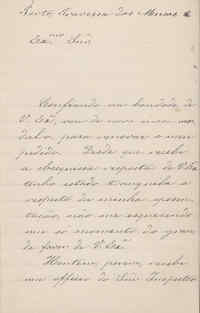 Porto, Travessa das Musas 6
Exmo Snr
Confiando na bondade de
V. Exª, vou de novo incom-
modal-o para renovar o meu
pedido. Desde que recebi
a obsequiosa resposta de V. Exª
tenho estado tranquilla a
respeito da minha aposen-
tação, não me esquecendo
nem um momento do gran-
de favor de V. Exª
Hontem, porem, recebi
um officio do Snr Inspector